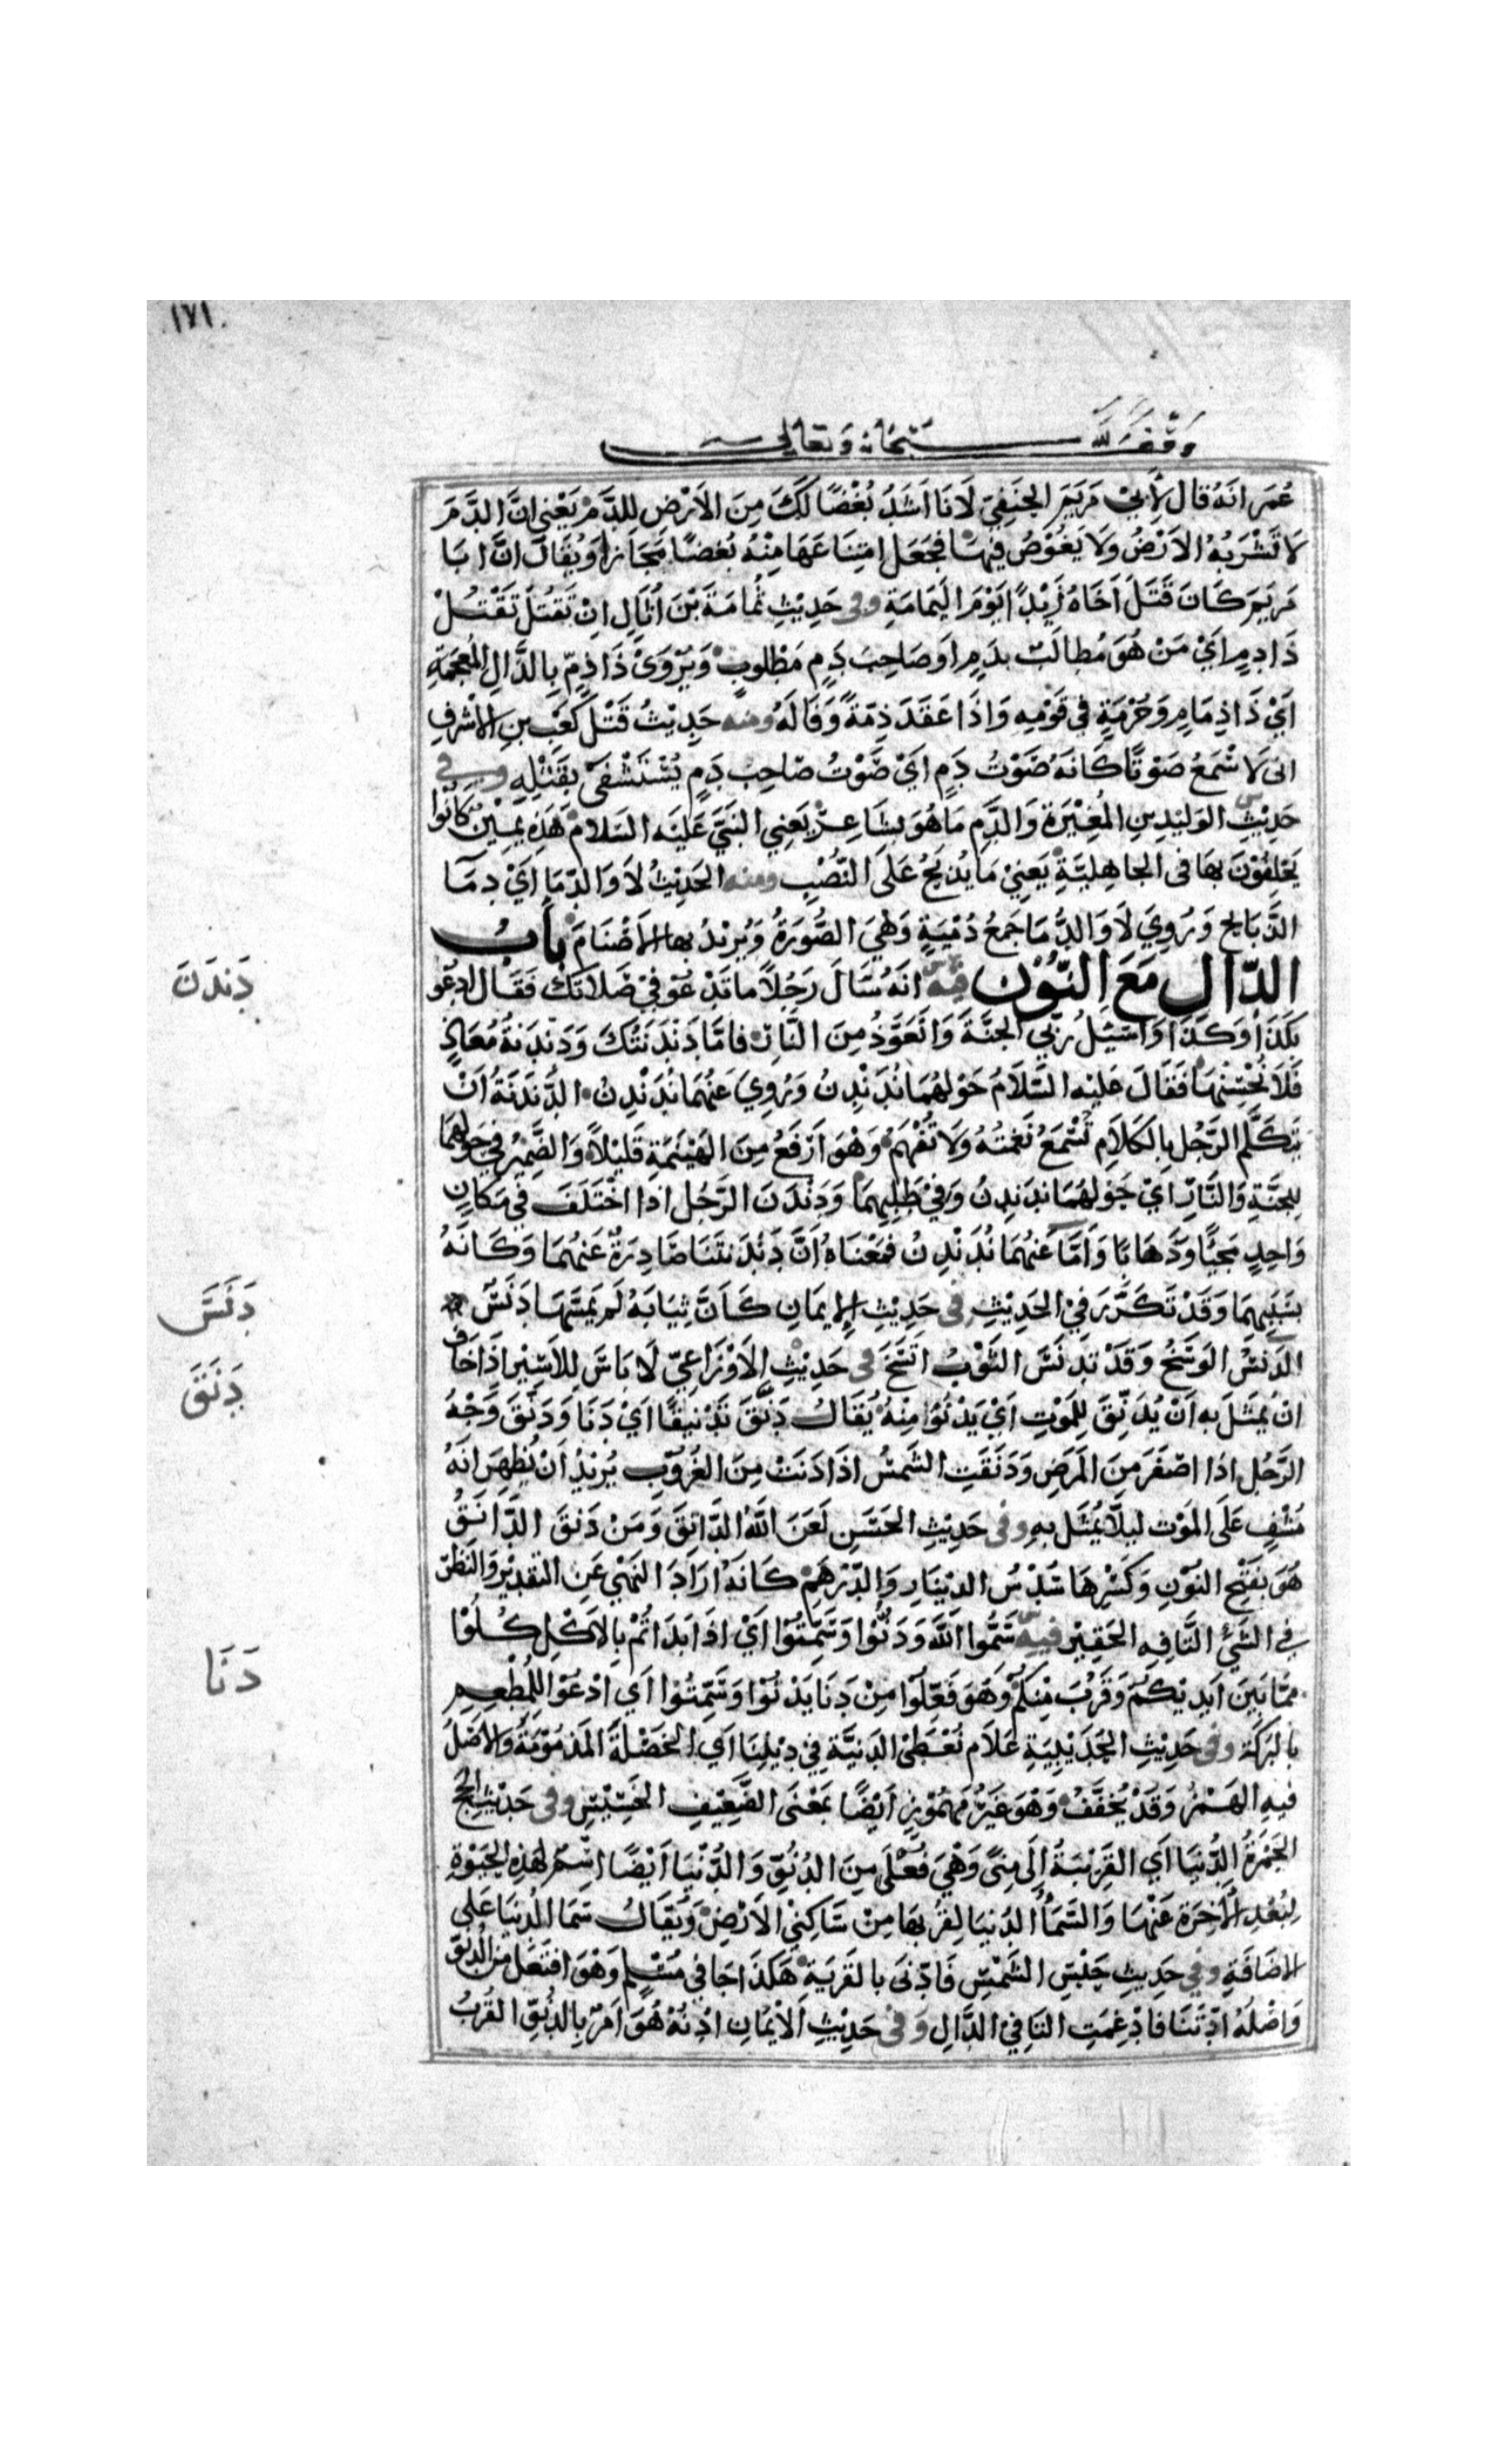 ١٧١
وقف لله سبحانه وتعالى
عُمَر انَهُ قال لِأَبيْ مَريَمَ الحَنَفِيّ لَانَا اَشَدُ بُغْضًا لَكَ مِنَ الاَرْضِ لِلدَّمْ يَعْنِي انَّ الدَّمَ
لَا تَشْرَبُهُ الاَرْضُ وَلَا يَغُوْصُ فِيهَا فجَعَل امتِنَاعَهَا مِنْهُ بُغضًا مَجَازا وَيُقَال انَّ ابَا
مَريَمَ كَانَ قَتَلَ اَخَاهُ زَيْدًا يَوْمَ اليَمَامَةِ وفى حَدِيْثِ ثُمَامَةَ بْنَ اُثَالٍ اِنْ تَقتُلَ تَقْتُلْ
ذَا دمٍ اَيْ مَنْ هُوَ مُطالَبٌ بدَمٍ او صَاحِبَ دَمٍ مَطْلوبٍ وَيُرْوَىْ ذَا ذِمٍّ بِالذَّالِ المُعجَمَةِ
اَيْ ذَا ذِمَامٍ وَحُرْمَةٍ فِي قَوْمِهِ وَاِذَا عَقَدَ ذِمّةً وَفَا لَهُ ومنه حَدِيْثُ قَتْل كَعْبِ بنِ الاشْرفِ
انى لَا سْمَعُ صَوْتًا كَانَهُ صَوْتُ دَمٍ اَيْ صَوْتُ صَاحِبْ دَمٍ يَسْتَشْفَىْ بِقَتْلِهِ وفي
حَدِيْثِ الوَلِيْدِ بنِ المُغِيْرَةِ وَالدَّمِ مَا هُوَ بِشَاعِرْ يَعنِي النَبِيَّ عَليْه السَلام هَذِهِ يَمِيْنٌ كَانُوْا
يَحْلِفُوْنَ بِهَا فى الجاهِليَّةِ يَعنِيْ مَا يُذبَحُ عَلَى النُّصُبِ ومنه الحَدِيْثُ لَا وَالدِّمَا اَيْ دِمَا
الذَّبَايِح وَرُوِيَ لَا وَالدُّمَا جَمعُ دُمْيَةٍ وَهْيَ الصُّورَةُ وَيُرِيْدُ بهَا الاَصْنَامَ بابُ
الدّال مَعَ النّوُن فيه انَهُ سَالَ رَجُلًا ما تَدْعُوْ فيْ صَلَاتكَ فَقَال ادعُو
بكَذَا وَكَذَا وَاسَئلُ رَبّي الجَنَّةَ وَاَتَعَوَّذُ مِنَ النَّارِ فامَّا دَنْدَنَتُكَ وَدَنْدَنَةُ مُعَاذٍ
فَلَا نُحْسِنُهَا فَقَالَ عَليْه السَّلَامُ حَوْلهُمَا نُدَنْدِنُ وَرُوِيَ عَنْهُمَا نُدَنْدِنُ الدَّنْدَنَةُ اَنْ
يَتكَلَّم الرَجُل بِالكَلَامِ تُسْمَعُ نَغمَتُهُ وَلَا تُفْهَمُ وَهْوَ اَرْفَعُ مِنَ الهَيْنَمَةِ قَلِيْلًا وَالضَّمِيْرُ فِي حَوْلهمَا
لِلجَنَّةِ وَالنَّارْ اَيْ حَوْلهُمَا نُدَنْدِنُ وَفِيْ طَلبِهِمَا وَدَنْدَنَ الرَّجُل اذَا اخْتَلَفَ في مَكَانٍ
وَاحِدٍ مَجيًّا وَذَهَابًا وَاَمَّا عَنْهُمَا نُدَنْدِنُ فمَعْنَاهُ اَنَّ دَنْدَنَتَنَا صَادِرَةٌ عَنْهُمَا وَكَانَهُ
بسَبَبِهِمَا وَقَدْ تَكَرَّرَ فيْ الحَدِيْثِ فى حَدِيْثِ الاِيمَانِ كَاَنَّ ثِيَابَهُ لَم يَمَسَّهَا دَنَسٌ
الدَنسُ الوَسَخُ وَقَدْ تَدنَسَّ الثَوْبُ اتَّسَخَ فى حَدِيْثِ الاَوْزَاعِيّ لَا بَاسَ لِلاَسِيْر اِذَا خَافَ
انْ يُمَثَّلَ به اَنْ يُدَنِّقَ لِلمَوْتِ اَيْ يَدْنُوْا مِنْهُ يُقَالُ دَنَّقَ تَدْنِيقًا اَيْ دَنَا وَدَنَّقَ وَجْهُ
الرَّجُل اذَا اصْفَرَ مِنَ المَرَضِ وَدَنَّقَتِ الشَمسُ اذَا دَنَتْ مِنَ الغُرُوْبِ يُرِيْدُ اَنْ يُظهِرَ انَهُ
مُشْفٍ عَلَى المَوْتِ لِيلَّا يُمَثَّل بهِ وفى حَدِيْثِ الحَسَنِ لَعَنَ اللهُ الدَّانِقَ وَمَنْ دَنقَ الدَّانَقُ
هُوَ بفَتْحِ النوْنِ وَكَسْرِهَا سُدْسُ الديْنَارِ وَالدّرهَمْ كَانَهُ اَرَادَ النَهْيَ عَنِ التقدِيْرِ وَالنَظَرْ
فِي الشَيْ التَّافِهِ الحَقِيْر فيه سَمُّوا اللهَ وَدَنُّوْا وَسَمّتُوْا اَيْ اذَا بَدَاتُمْ بِالاَكْلِ كُلُوْا
ممَّا بَيْنَ اَيدِيْكُمْ وَقَرُبَ مِنْكُمْ وَهْوَ فَعِّلُوْا مِنْ دَنَا يَدْنُوْا وَسَمّتُوْا اَي ادْعُوْا لِلمُطْعِمِ
بالبَرَكَةِ وفى حَدِيْثِ الحُدَيْبِيَةِ عَلَامَ نُعْطَىْ الدَنِيَّةَ فِي دِيْنِنَا اَيِ الخَصْلَةَ المَذمُوْمَةَ وَالاصْلُ
فيهِ الهَمْزُ وَقَدْ يُخَفَّفُ وَهْوَ غَيرُ مَهمُوْزٍ اَيْضًا بمَعْنَى الضَّعِيْفِ الخَسِيْسِ وفى حَدِيْثِ الحَجّ
الجَمْرَةُ الدُّنيَا اَي القَرِيْبَةُ اِلَى مِنًى وَهْيَ فُعْلَى مِنَ الدُنُوِّ وَالدُّنْيَا اَيْضًا اسْمٌ لهَذِهِ الحَيٰوةِ
لِبُعْدِ الاٰخِرَةِ عَنْهَا وَالسَّمَأُ الدُنيَا لِقُربهَا مِنْ سَاكِنِيْ الاَرْضِ وَيُقَالُ سَمَا الدُنيَا عَلَى
الاضَافَةِ وفي حَدِيثِ حَبْسِ الشَمْسِ فَادّنَى بالقَريَةِ هَكَذَا جَا فِي مُسْلِمٍ وَهْوَ افتَعَل مِنَ الدُنوِّ
وَاَصْلُهُ ادْتَنَا فادْغِمَتِ التَا فيْ الدَّالِ وَفْي حَدِيْثِ الاَيْمَانِ ادْنُهْ هُوَ اَمرٌ بِالدُنُوِّ القُرْبُ
دَندَنَ
دَنَسَ
دَنَقَ
دَنَا